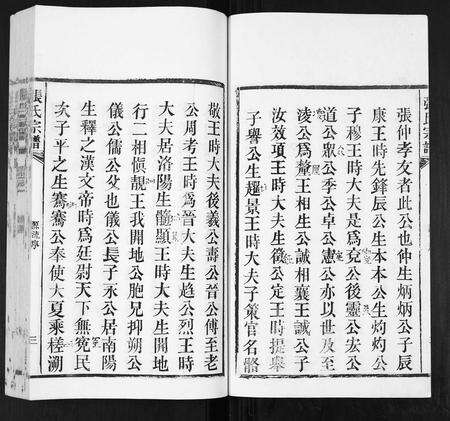 張仲孝友者此公也仲生炳炳公子辰
康王時先鋒辰公生本本公生灼灼公
子穆王時大夫是爲兗公後靈公宏公
道公眾公季公卓公憲公亦以世及至
淩公爲釐王相生公誠相襄王誠公子
汝效項王時大夫生徵公定王時提舉
子譽公生趯景王時大夫子策官名骼
敬王時大夫後義公壽公晉公傅至老
公周考王時爲晉大夫生趋公烈王時
大夫居洛陽生髓顯王時大夫生開地
行二相愼靚王我開地公胞兄抑朔公
儀公儒公㕛也儀公長子永公居南陽
生釋之漢文帝時爲廷尉天下無寃民
次子平之生騫騫公奉使大夏乘槎溯
張氏宗譜
源流序
三